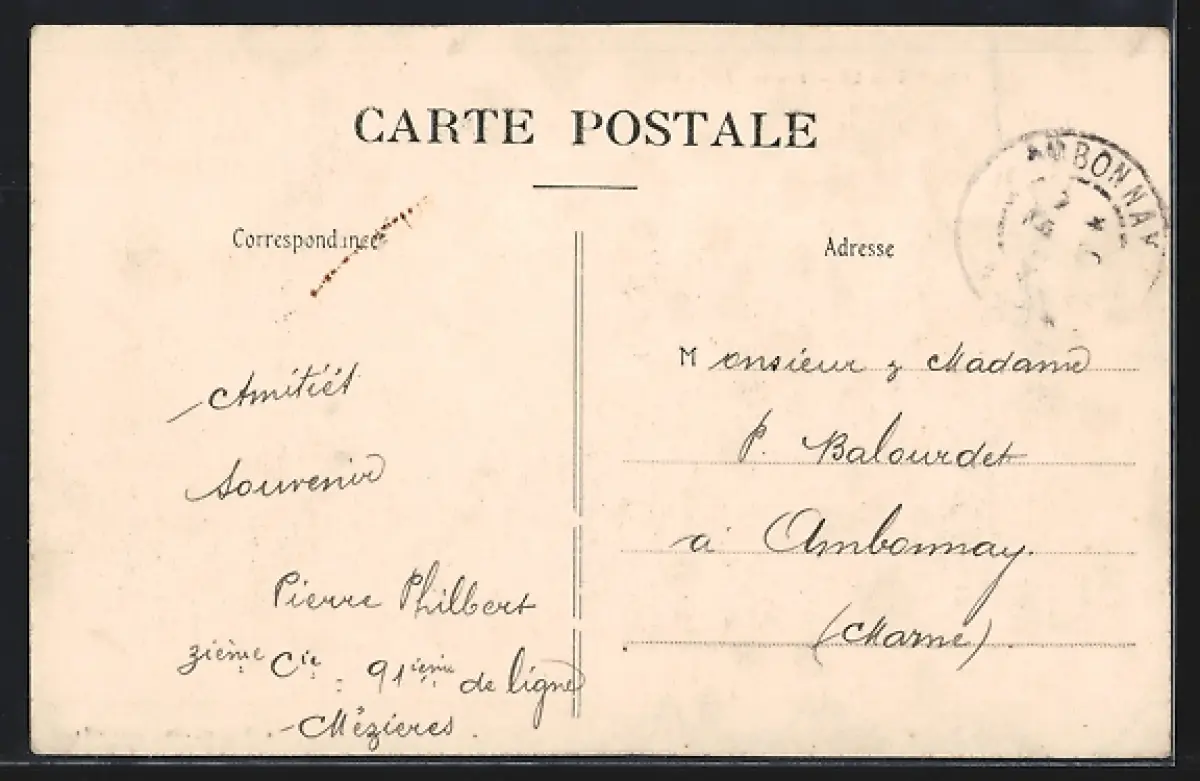 CARTE POSTALE
Correspondance
Adresse
AMBONNAY
Amitiés
Souvenir
Pierre Philbert
3ième Cie 91ième de ligne
Mézières.
Monsieur & Madame
P. Balourdet
à Ambonnay.
(Marne)